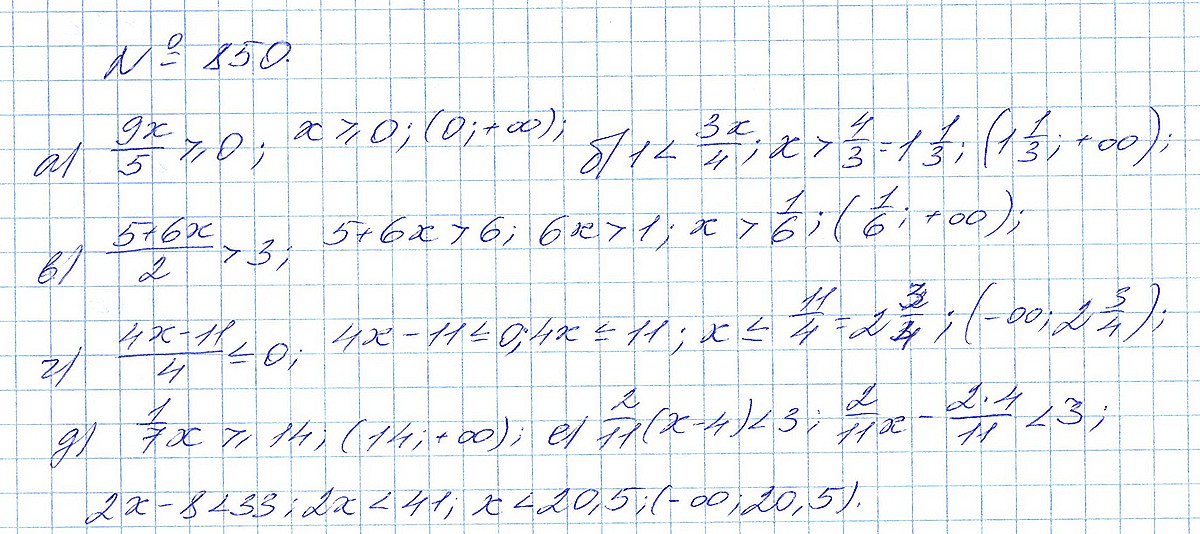 № 850.
а) 9x/5 ⩾ 0; x ⩾ 0; (0; +∞); б) 1 < 3x/4; x > 4/3 = 1 1/3; (1 1/3; +∞);
в) (5+6x)/2 > 3; 5+6x > 6; 6x > 1; x > 1/6; (1/6; +∞);
г) (4x-11)/4 ≤ 0; 4x-11 ≤ 0; 4x ≤ 11; x ≤ 11/4 = 2 3/4; (-∞; 2 3/4);
д) 1/7 x ⩾ 14; (14; +∞); е) 2/11 (x-4) < 3; 2/11 x - 2·4/11 < 3;
2x-8 < 33; 2x < 41; x < 20,5; (-∞; 20,5).